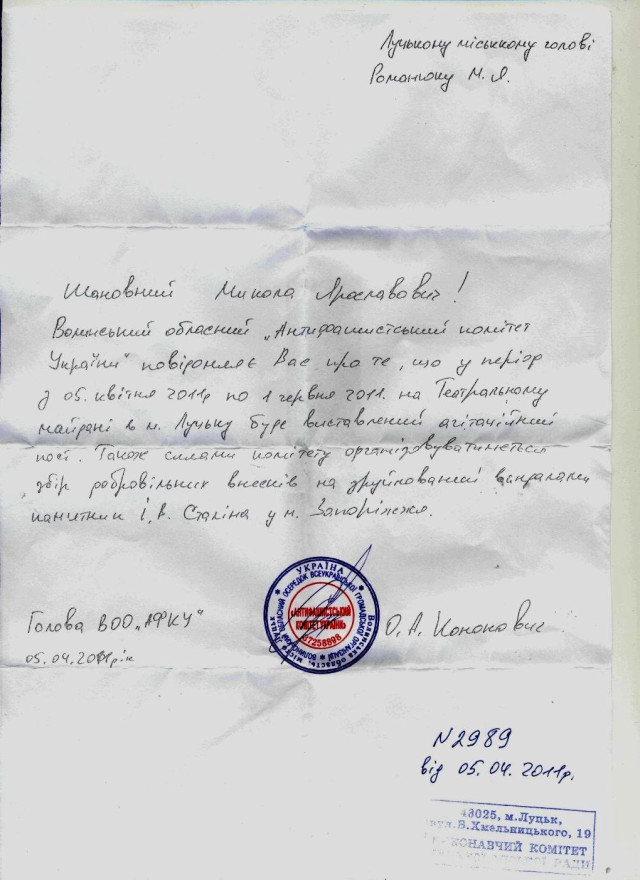 Луцькому міському голові
Романюку М. Я.
Шановний Микола Ярославович!
Волинський обласний „Антифашистський комітет
України" повідомляє Вас про те, що у період
з 05. квітня 2011р по 1 червня 2011. на Театральному
майдані в м. Луцьку буде виставлений агітаційний
пост. Також силами комітету організовуватиметься
збір добровільних внесків на зруйнований вандалами
памятник І. В. Сталіна у м. Запоріжжя.
УКРАЇНА
„АНТИФАШИСТСЬКИЙ
КОМІТЕТ УКРАЇНИ"
37258898
Голова ВОО „АФКУ"
О. А. Кононович
05.04.2011рік
N2989
від 05.04.2011р.
43025, м.Луцьк,
вул.Б.Хмельницького, 19
КОНАВЧИЙ КОМІТЕТ
РАДИ